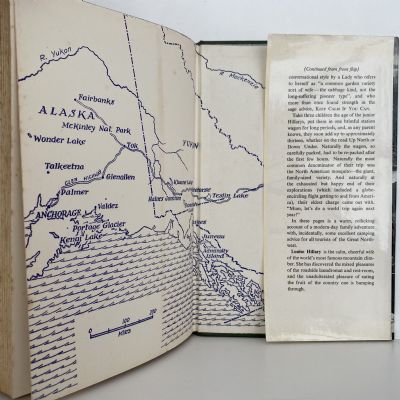 R. Yukon
R. Mackenzie
Fairbanks
ALASKA
McKinley Nat. Park
YUKON
Wonder Lake
Tok
Talkeetna
GLEN HIGHWAY
Glenallen
Palmer
Kluane Lake
Whitehorse
ANCHORAGE
Valdez
Haines Junction
Teslin Lake
Portage Glacier
Kenai Lake
Admiralty
Island
0 100 200
MILES
(Continued from front flap)
conversational style by a Lady who refers
to herself as "a common garden variety
sort of wife—the cabbage kind, not the
long-suffering pioneer type", and who
more than once found strength in the
sage advice, KEEP CALM IF YOU CAN.
Take three children the age of the junior
Hillarys, put them in one brimful station
wagon for long periods, and, as any parent
knows, they soon add up to approximately
thirteen, whether on the road Up North or
Down Under. Naturally the wagon, so
carefully packed, had to be re-packed after
the first few hours. Naturally the most
common denominator of their trip was
the North American mosquito—the giant,
family-sized variety. And naturally at
the exhausted but happy end of their
explorations (which included a globe-
encircling flight getting to and from Amer-
ica), their eldest charge came out with,
"Mum, let's do a world trip again next
year!"
In these pages is a warm, rollicking
account of a modern-day family adventure
with, incidentally, some excellent camping
advice for all tourists of the Great North-
west.
Louise Hillary is the calm, cheerful wife
of the world's most famous mountain clim-
ber. She has discovered the mixed pleasures
of the roadside laundromat and rest-room,
and the unadulterated pleasure of eating
the fruit of the country one is bumping
through.